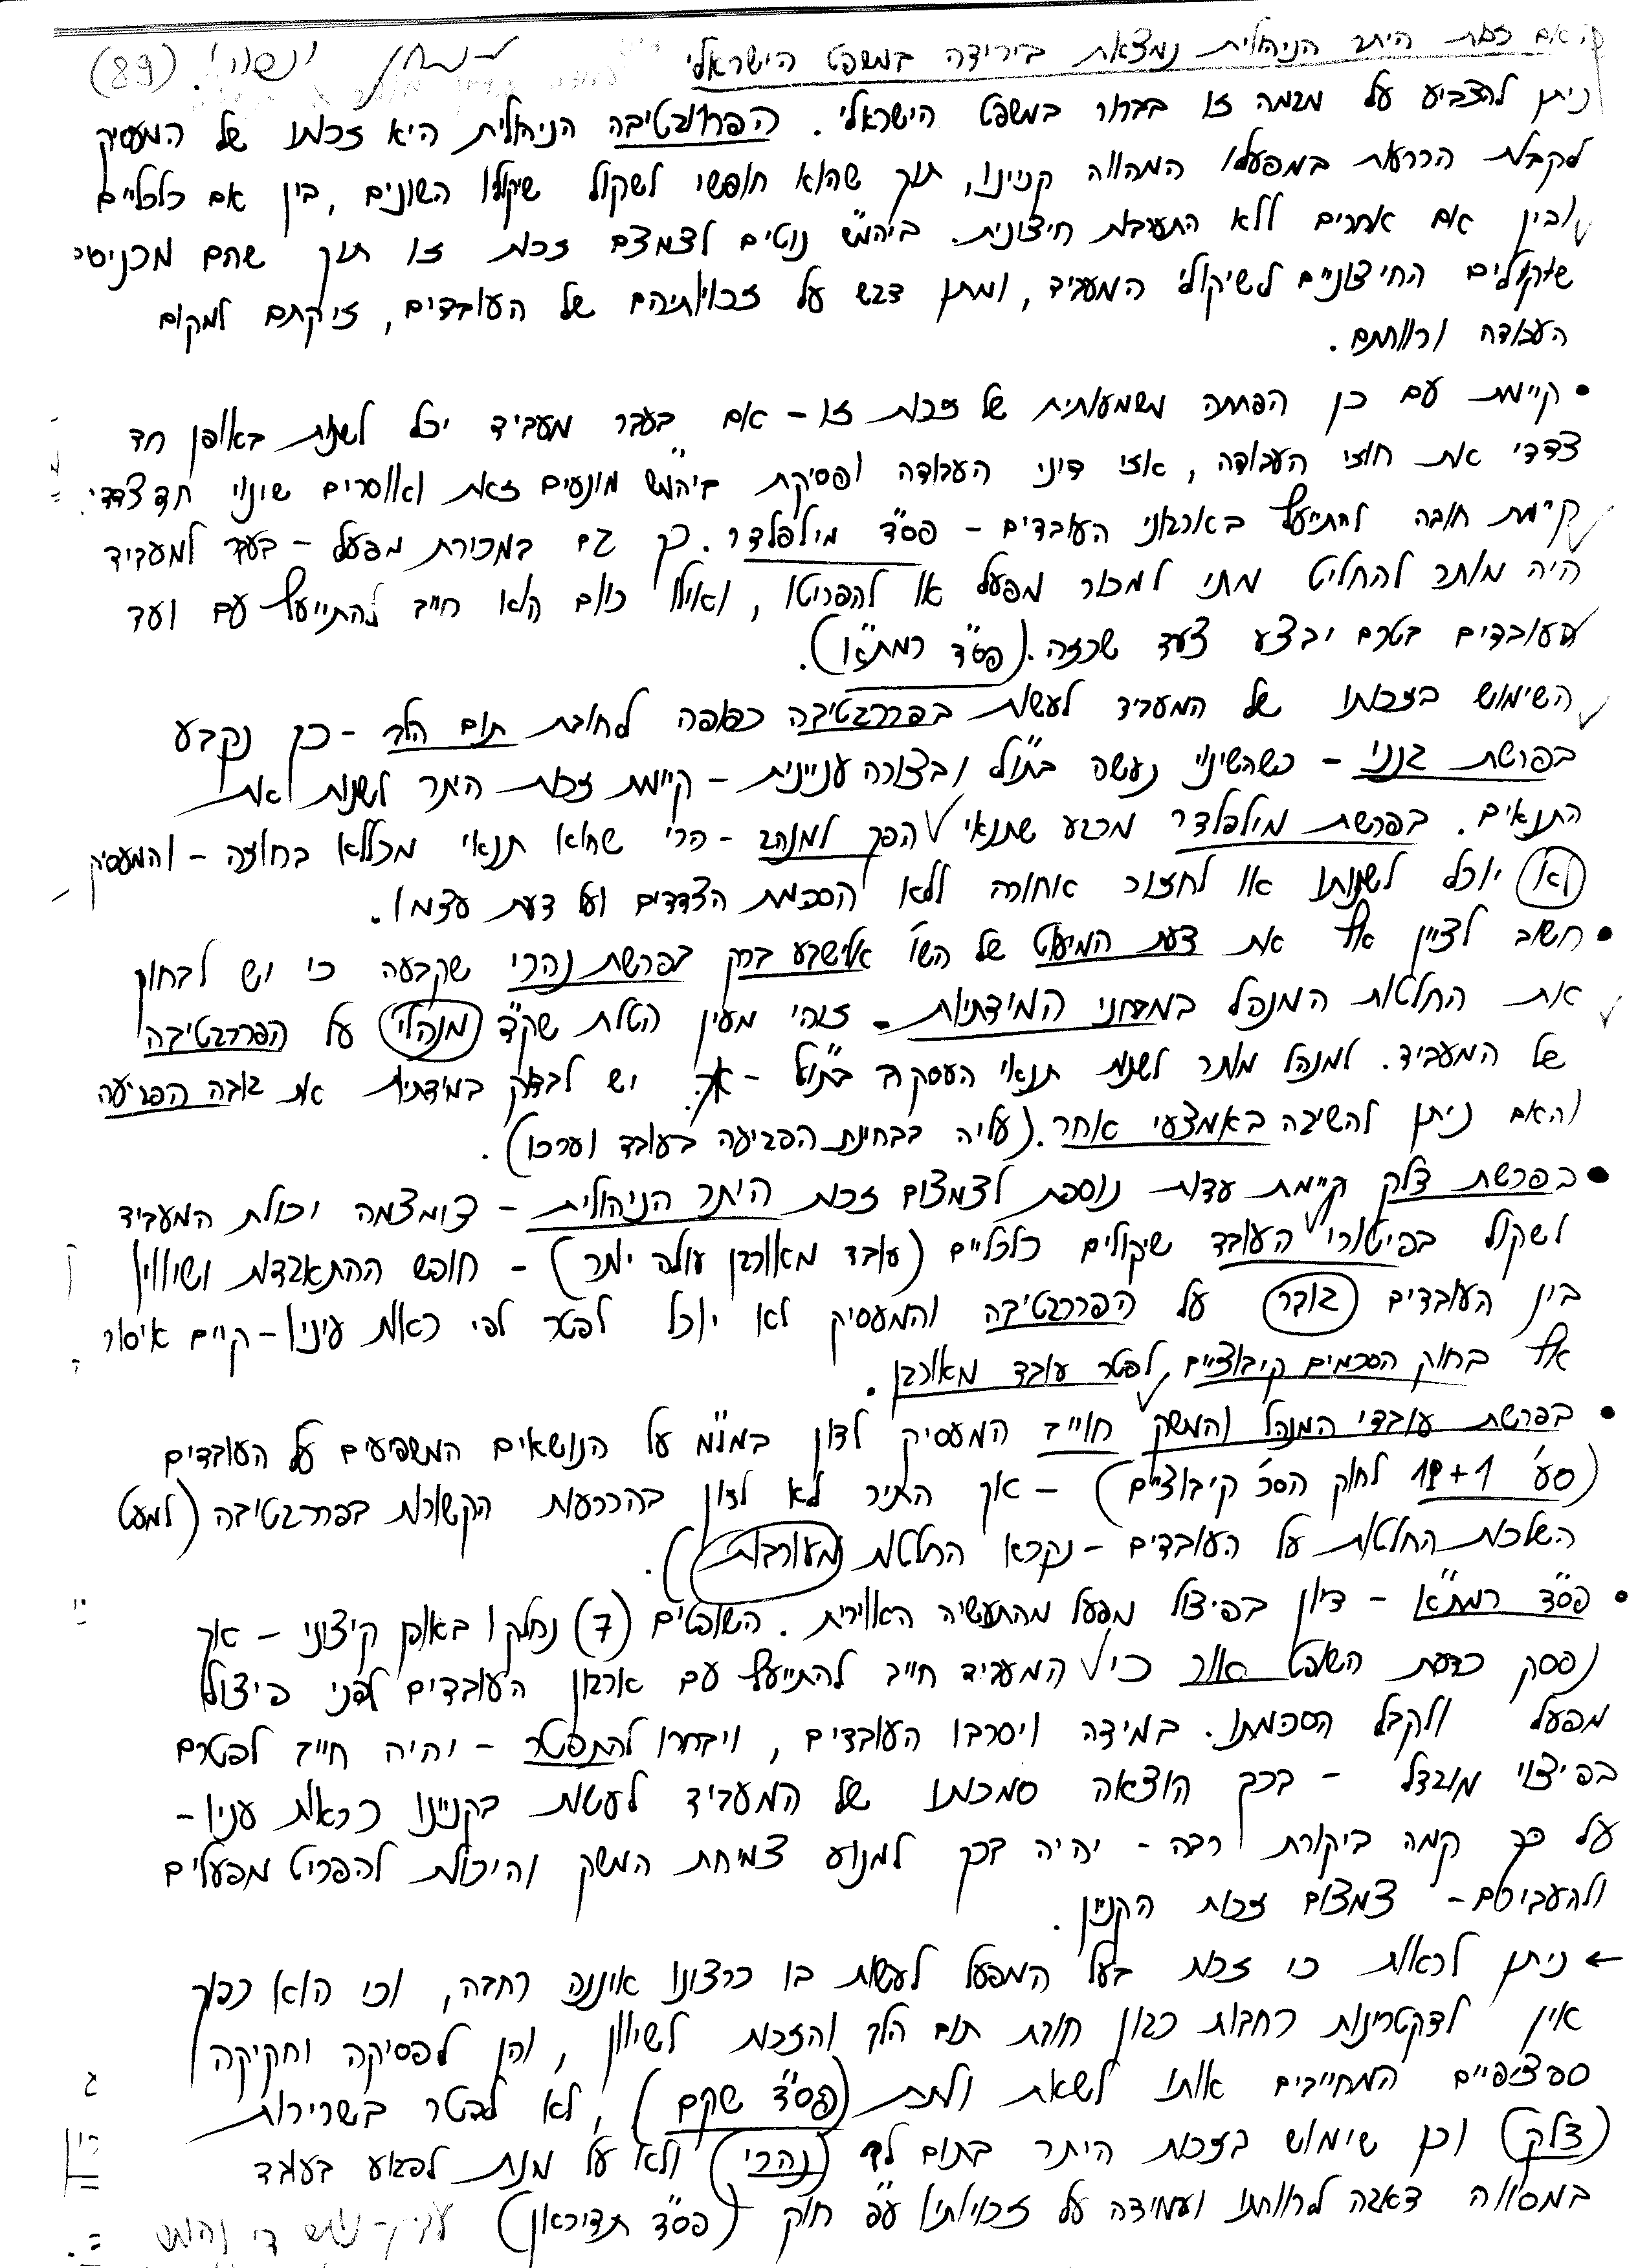 האם זכות היתר הניהולית נמצאת בירידה במשפט הישראלי (89)
ניתן להצביע על מגמה זו בברור במשפט הישראלי. הפררוגטיבה הניהולית היא זכותו של המעסיק
לקבלת הכרעות במפעלו המהווה קניינו, תוך שהוא חופשי לשקול שיקוליו השונים, בין אם כלכליים
ובין אם אחרים ללא התערבות חיצונית. ביהמ"ש נוטים לצמצם זכות זו תוך שהם מכניסים
שיקולים החיצוניים לשיקולי המעביד, ומתן דגש על זכויותיהם של העובדים, זיקתם למקום
העבודה ורווחתם.
• קיימת עם כן הפחתה משמעותית של זכות זו - אם בעבר מעביד יכל לשנות באופן חד
צדדי את חוזי העבודה, אזי דיני העבודה ופסיקת ביהמ"ש מונעים זאת ואוסרים שינוי חד צדדי.
קיימת חובה להתייעץ בארגוני העובדים - פס"ד מילפלדר. כך גם במכירת מפעל - בעבר למעביד
היה מותר להחליט מתי למכור מפעל או להפריטו, ואילו כיום הוא חייב להתייעץ עם ועד
העובדים בטרם יבצע צעד שכזה. (פס"ד רמת"א).
השימוש בזכותו של המעביד לעשות בפררוגטיבה כפופה לחובת תום הלב - כך נקבע
בפרשת גנני - כשהשינוי נעשה בתו"ל ובצורה עניינית - קיימת זכות היתר לשנות את
התנאים. בפרשת מילפלדר מכרע שתנאי הפך למנהג - הרי שהוא תנאי מכללא בחוזה - והמעסיק
לא יוכל לשנותו או לחזור אחורה ללא הסכמת הצדדים ועל דעת עצמו.
• חשוב לציין אף את דעת המיעוט של השו' אלישבע ברק בפרשת נהרי שקבעה כי יש לבחון
את החלטות המנהל במבחני המידתיות. זוהי מעין הטלת שק"ד מנהלי על הפררוגטיבה
של המעביד. למנהל מותר לשנות תנאי העסקה בתו"ל - אך יש לבדוק במידתיות את גובה הפגיעה
והאם ניתן להשיבה באמצעי אחר. (עליה בבחינת הפגיעה בעובד וערכו).
• בפרשת צלק קיימת עדות נוספת לצמצום זכות היתר הניהולית - צומצמה יכולת המעביד
לשקול בפיטורי העובד שיקולים כלכליים (עובד מאורגן עולה יותר) - חופש ההתאגדות ושיוויון
בין העובדים גובר על הפררוגטיבה והמעסיק לא יוכל לפטר לפי ראות עיניו - קיים איסור
אף בחוק הסכמים קיבוציים לפטר עובד מאורגן.
• בפרשת עובדי המנהל והמשק חוייב המעסיק לדון במו"מ על הנושאים המשפיעים על העובדים
(סע' 1+19 לחוק הס' קיבוציים) - אך התיר לא לדון בהכרעות הקשורות בפררוגטיבה (למעט
השלכות החלטות על העובדים - נקרא החלטות מעורבות).
• פס"ד רמת"א - דיון בפיצול מפעל מהתעשיה האווירית. השופטים (7) נחלקו באופן קיצוני - אך
נפסק כדעת השופט אור כי המעביד חייב להתייעץ עם ארגון העובדים לפני פיצול
מפעל ולקבל הסכמתו. במידה ויסרבו העובדים, ויבחרו להתפטר - יהיה חייב לפטרם
בפיצוי מוגדל - בכך הוצאה סמכותו של המעביד לעשות בקניינו כראות עיניו -
על כך קמה ביקורת רבה - יהיה בכך למנוע צמיחת המשק והיכולת להפריט מפעלים
ולהעבירם - צמצום זכות הקניין.
← ניתן לראות כי זכות בעל המפעל לעשות בו כרצונו איננה רחבה, וכי הוא כפוף
אין לדקטרינות רחבות כגון חובת תום הלב והזכות לשיוון, והן לפסיקה וחקיקה
ספציפיים המחייבים אותו לשאת ולתת (פס"ד שקם), לא לפטר בשרירות
(צלק) וכן שימוש בזכות היתר בתום לב (נהרי) ולא על מנת לפגוע בעובד
במסווה דאגה לרווחתו ועמידה על זכויותיו עפ"י חוק (פס"ד תדיראן)